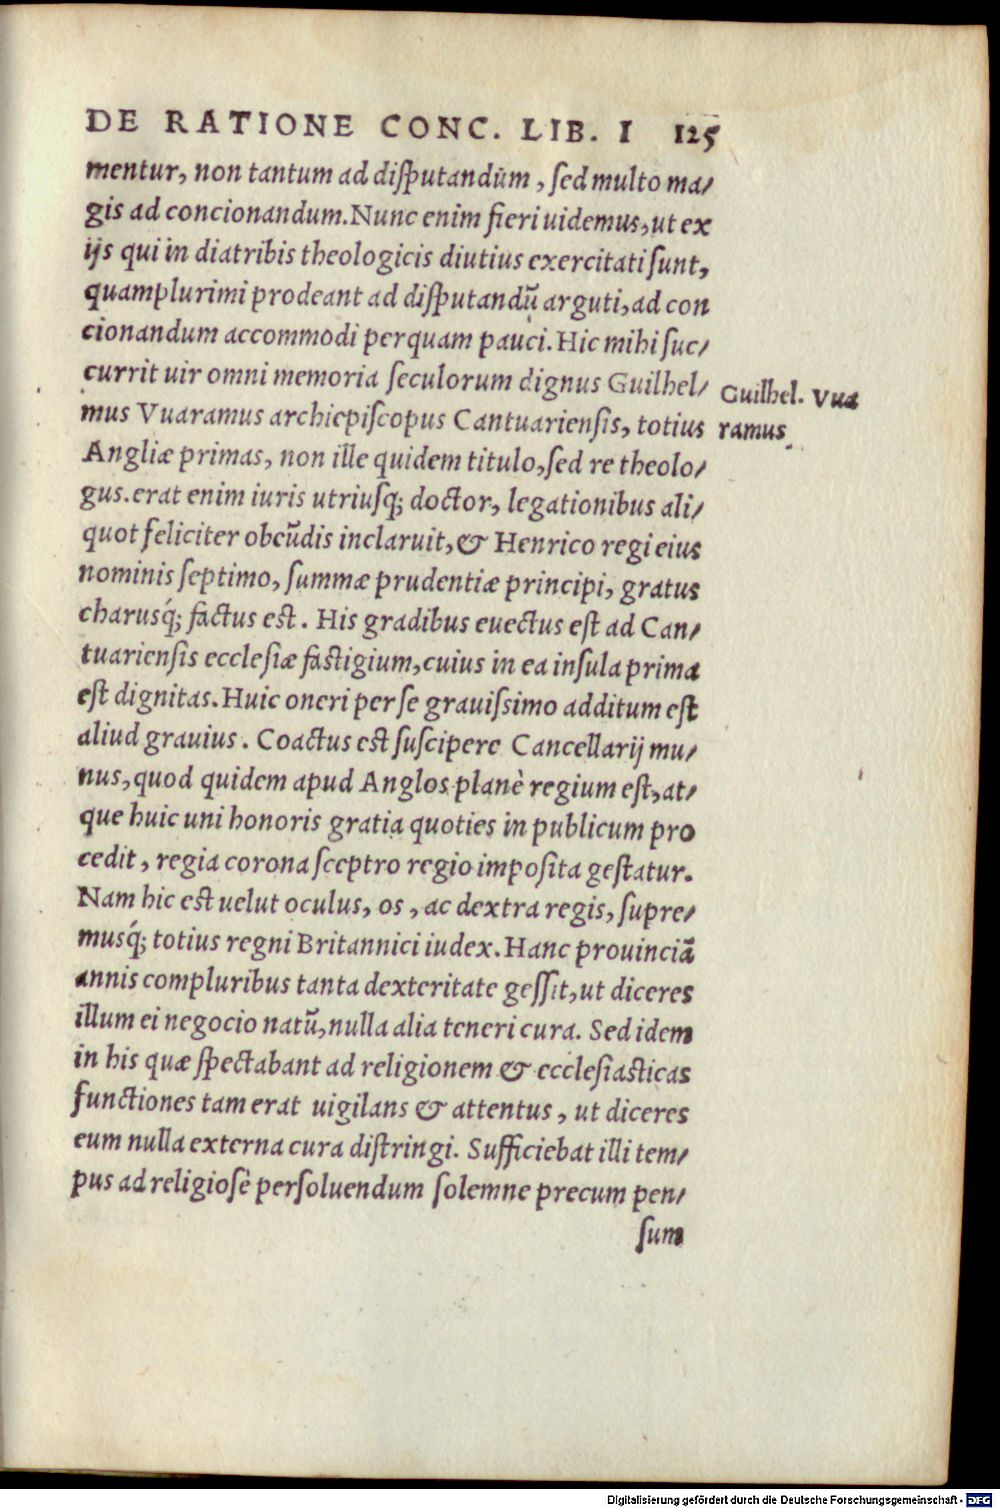 DE RATIONE CONC. LIB. I 125
mentur, non tantum ad diſputandum, ſed multo ma/
gis ad concionandum. Nunc enim fieri uidemus, ut ex
ijs qui in diatribis theologicis diutius exercitati ſunt,
quamplurimi prodeant ad diſputandū arguti, ad con
cionandum accommodi perquam pauci. Hic mihi ſuc/
currit uir omni memoria ſeculorum dignus Guilhel/
mus Vuaramus archiepiſcopus Cantuarienſis, totius
Guilhel. Vua
ramus
Angliæ primas, non ille quidem titulo, ſed re theolo/
gus. erat enim iuris utriuſq; doctor, legationibus ali/
quot feliciter obeūdis inclaruit, & Henrico regi eius
nominis ſeptimo, ſummæ prudentiæ principi, gratus
charusq́; factus eſt. His gradibus euectus eſt ad Can/
tuarienſis eccleſiæ faſtigium, cuius in ea inſula prima
eſt dignitas. Huic oneri per ſe grauiſsimo additum eſt
aliud grauius. Coactus eſt ſuſcipere Cancellarij mu/
nus, quod quidem apud Anglos planè regium eſt, at/
que huic uni honoris gratia quoties in publicum pro
cedit, regia corona ſceptro regio impoſita geſtatur.
Nam hic eſt uelut oculus, os, ac dextra regis, ſupre/
musq́; totius regni Britannici iudex. Hanc prouinciā
annis compluribus tanta dexteritate geſſit, ut diceres
illum ei negocio natū, nulla alia teneri cura. Sed idem
in his quæ ſpectabant ad religionem & eccleſiaſticas
functiones tam erat uigilans & attentus, ut diceres
eum nulla externa cura diſtringi. Sufficiebat illi tem/
pus ad religioſè perſoluendum ſolemne precum pen/
ſum
Digitalisierung gefördert durch die Deutsche Forschungsgemeinschaft - DFG